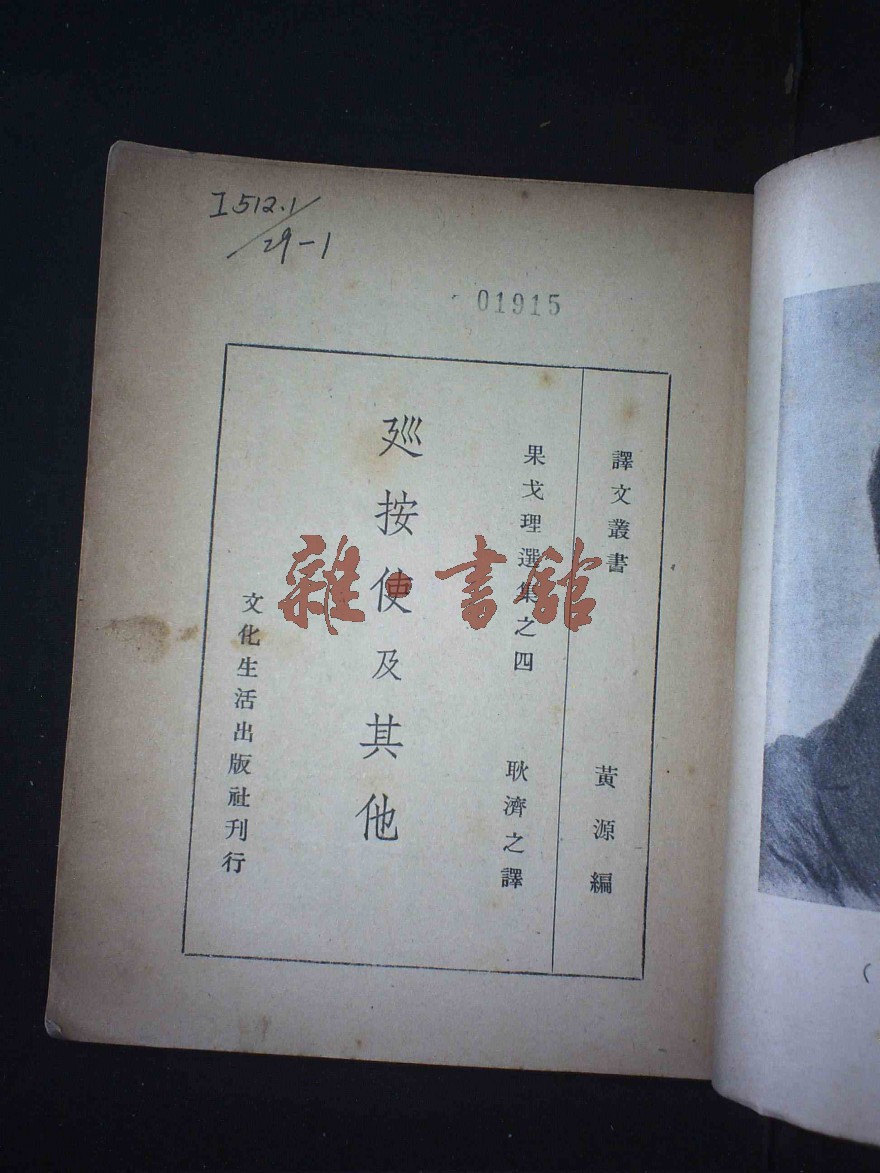 I512.1/
29-1
01915
譯文叢書
黃源編
果戈理選集之四
耿濟之譯
廵按使及其他
文化生活出版社刊行
雜書館
(